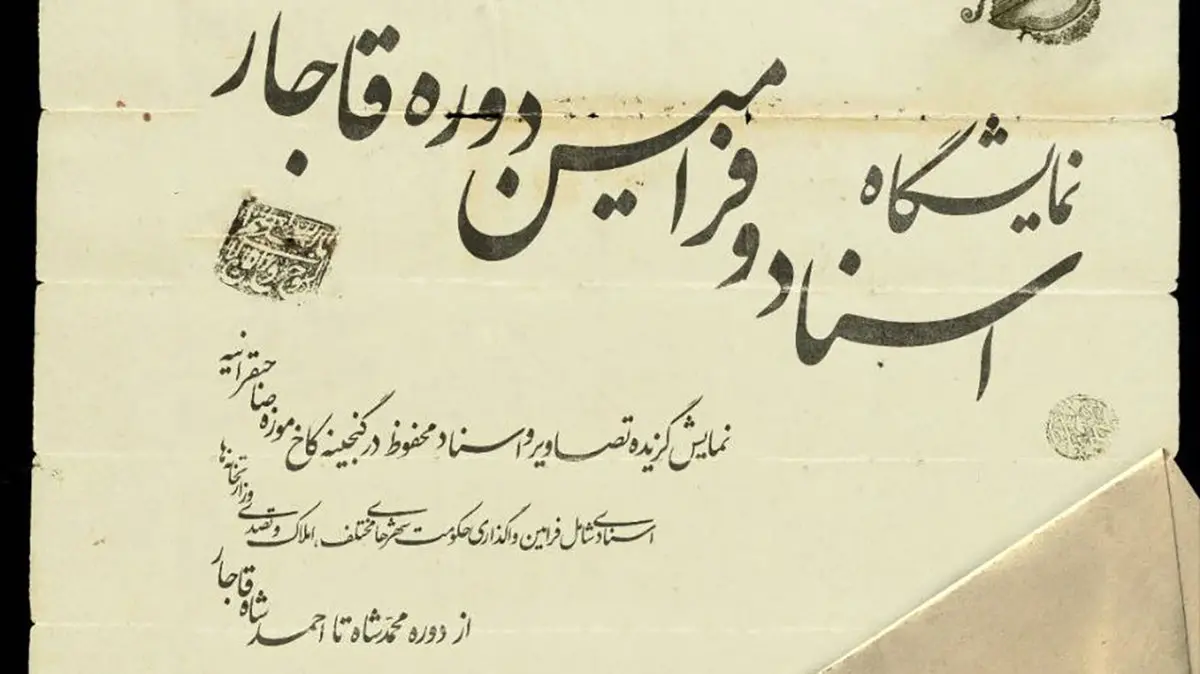 نمایشگاه
اسناد و فرامین دوره قاجار
نمایش گزیده تصاویر و اسناد محفوظ در گنجینه کاخ موزه صاحبقرانیه
اسنادی شامل فرامین واگذاری حکومت شهرهای مختلف، املاک و تصدی وزارتخانه‌ها
از دوره محمّدشاه تا احمدشاه قاجار